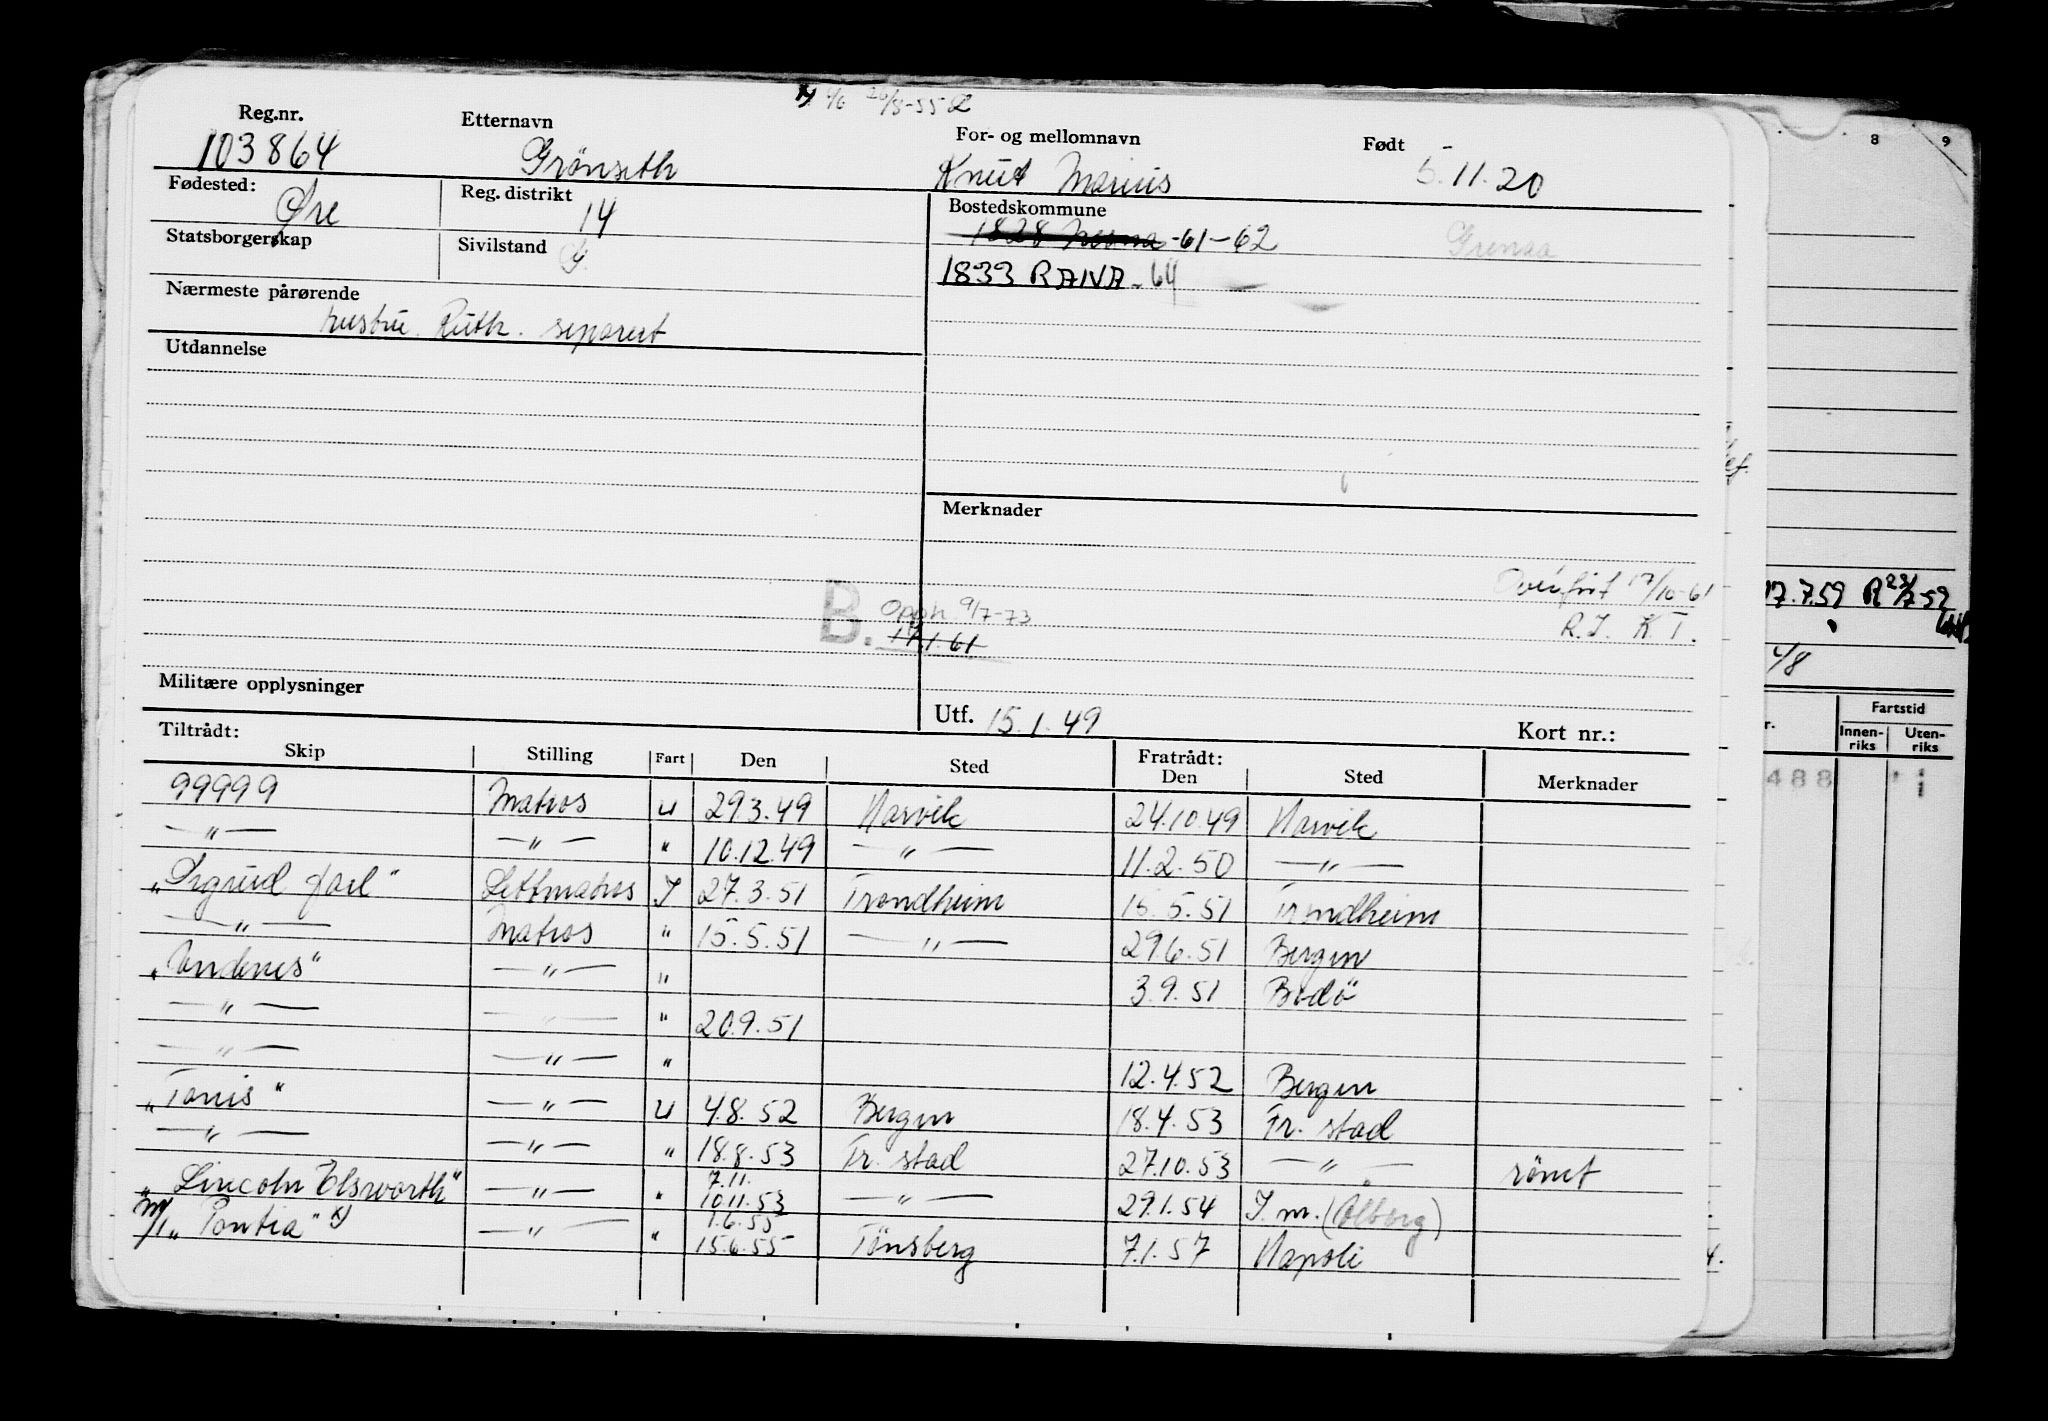 20/8-55
Reg.nr. Etternavn For- og mellomnavn Født
103864 Grönseth Knut Marius 5.11.20
Fødested: Øre Reg. distrikt 14 Bostedskommune
1828 Nesna -61-62 Grenaa
Statsborgerskap Sivilstand
1833 RANA -64
Nærmeste pårørende
hustru. Ruth. separert
Utdannelse
Merknader
Overført 17/10-61
R.I. K T.
B. Opph. 9/7-73
17.1.61
Militære opplysninger
Utf. 15.1.49 Kort nr.:
Tiltrådt: Fratrådt:
Skip Stilling Fart Den Sted Den Sted Merknader
99999 Matros U 29.3.49 Narvik 24.10.49 Narvik
—"— —"— " 10.12.49 —"— 11.2.50 —"—
"Sigurd Jarl" Lettmatros I 27.3.51 Trondheim 15.5.51 Trondheim
—"— Matros " 15.5.51 —"— 29.6.51 Bergen
"Andenes" —"— " 3.9.51 Bodö
—"— —"— " 20.9.51
—"— —"— " 12.4.52 Bergen
"Tanis" —"— U 4.8.52 Bergen 18.4.53 Fr. stad
—"— —"— " 18.8.53 Fr. stad 27.10.53 —"— römt
7.11.
"Lincoln Elsworth" —"— " 10.11.53 —"— 29.1.54 I.m. (Ålborg)
1.6.55
m/t "Pontia" x) —"— " 15.6.55 Tönsberg 7.1.57 Napoli
8 9
17.7.59 R 23/7-59
4/8
Fartstid
Innen-
riks
Uten-
riks
488